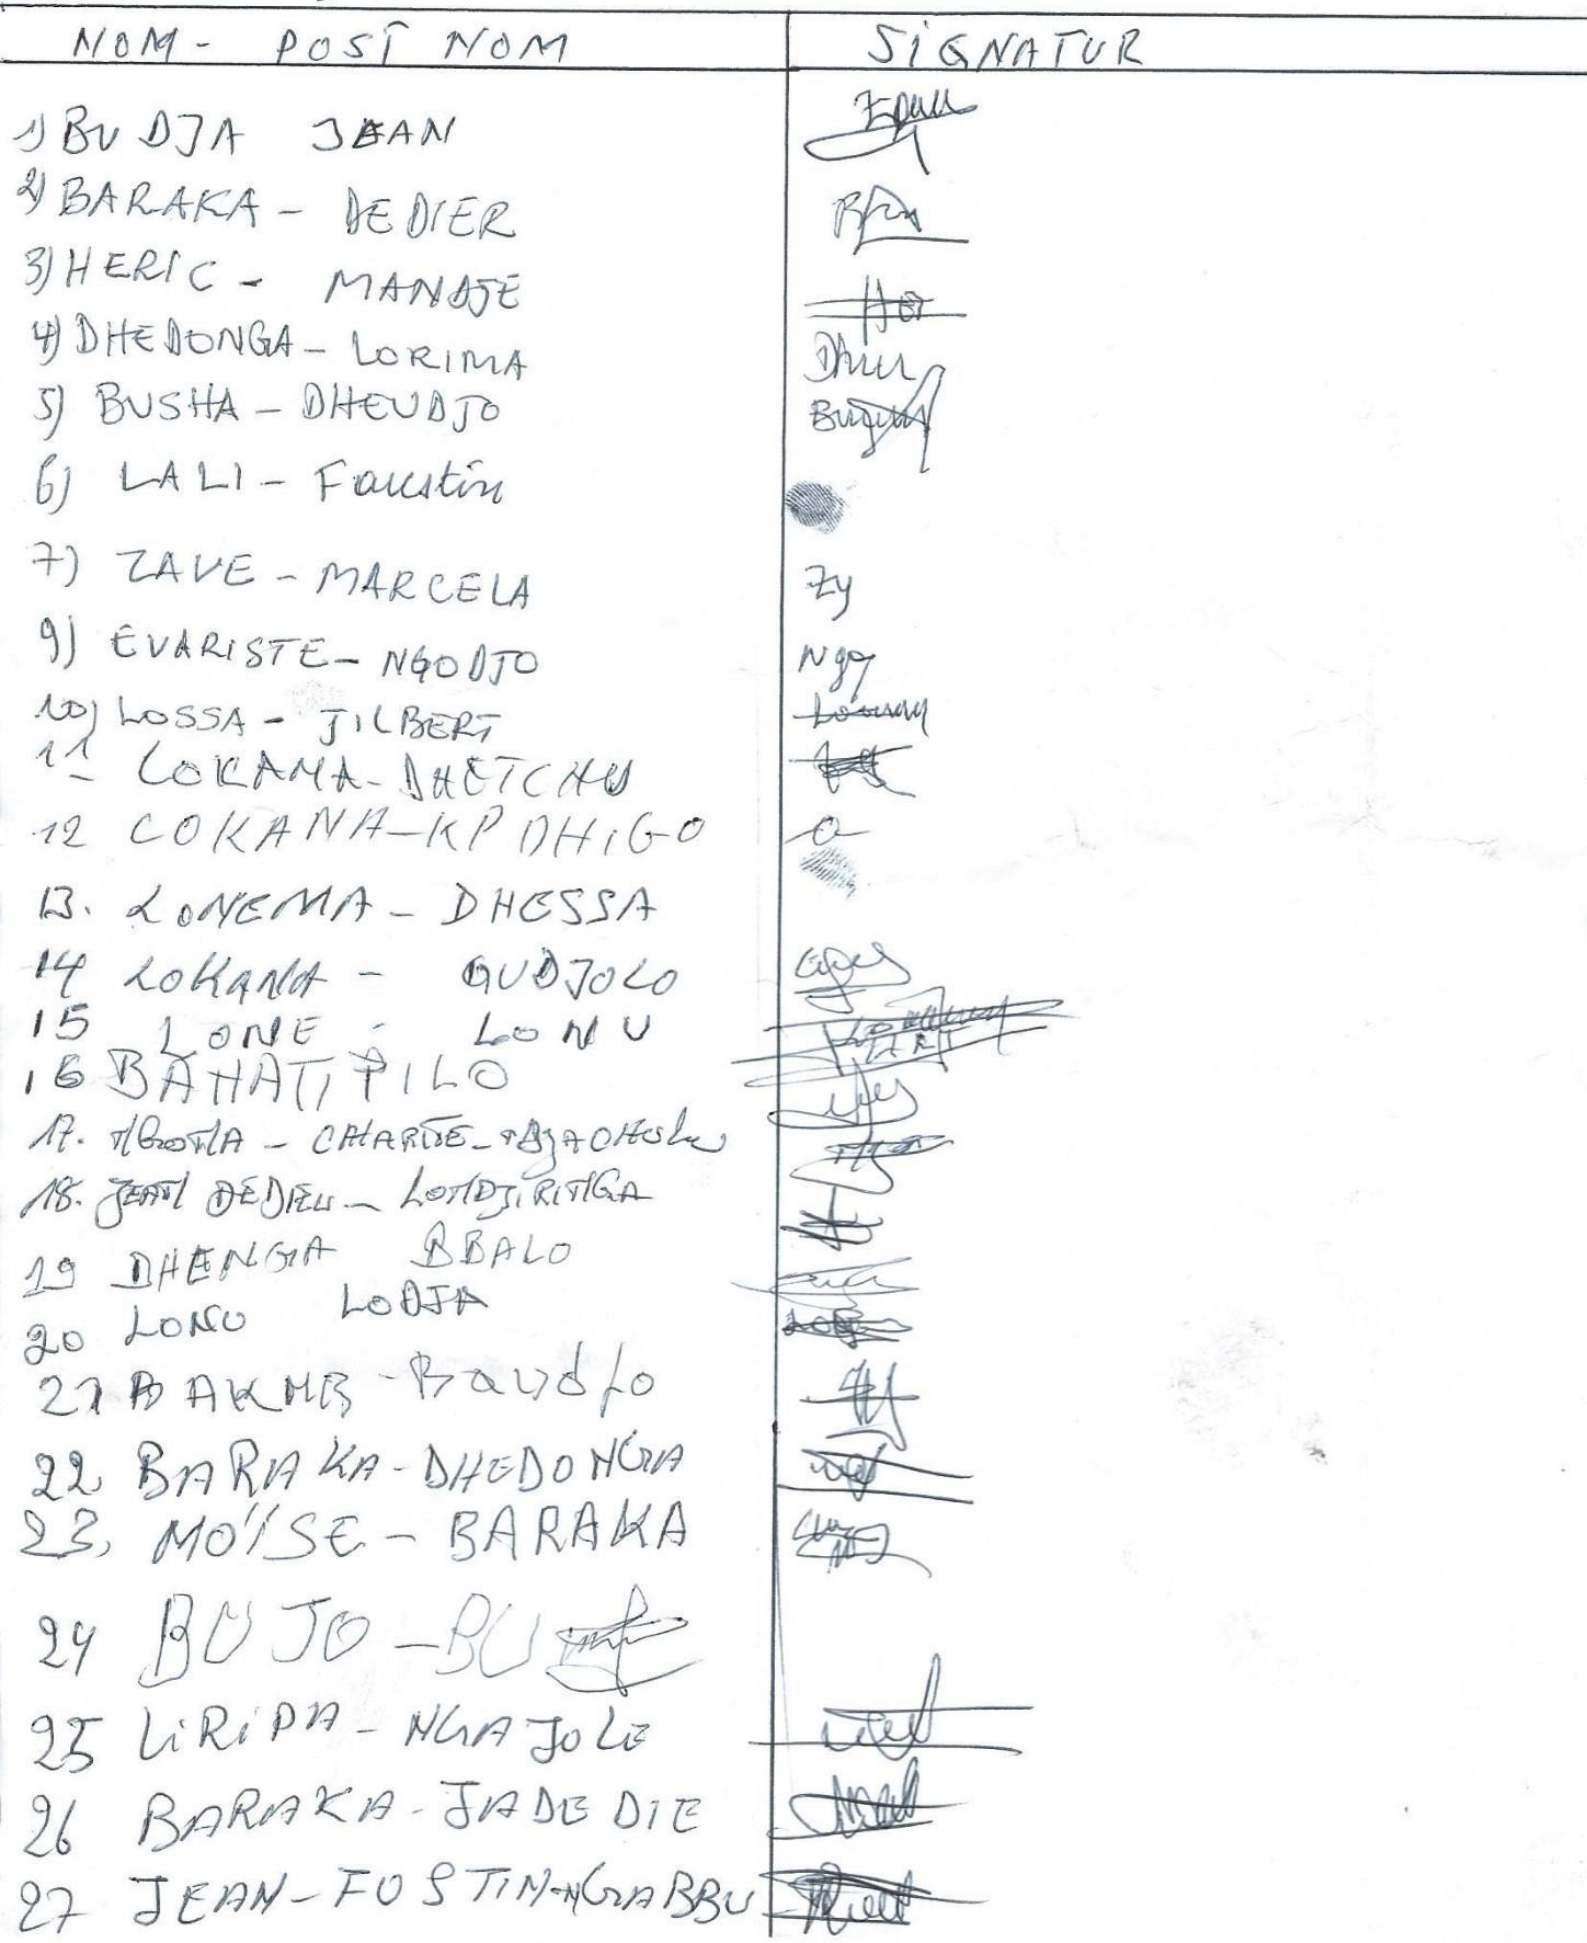 NOM - POST NOM SIGNATUR
1) BUDJA JEAN
2) BARAKA - DEDIER
3) HERIC - MANDJE
4) DHEDONGA - LORIMA Dhu
5) BUSHA - DHEUDJO
6) LALI - Faustin
7) ZAVE - MARCELA Zy
9) EVARISTE - NGODJO Ngo
10) LOSSA - JILBERT
11 LOKAMA - DHETCHU
12 COKANA - KPDHIGO
13. LONEMA - DHESSA
14 LOKANA - GUDJOLO
15 LONE - LONU
16 BAHATI PILO
17. NGONA - CHARITE -
18. JEAN DEDIEU - LONDJIRINGA
19 DHENGA BBALO
20 LONU LODJA
21 - Baudjo
22 BARAKA - DHEDONGA
23, MOÏSE - BARAKA
24 BUJO - BU
25 LiRiPA - NGAJOLE
26 BARAKA - JADEDIE
27 JEAN - FOSTIN - NGABBU